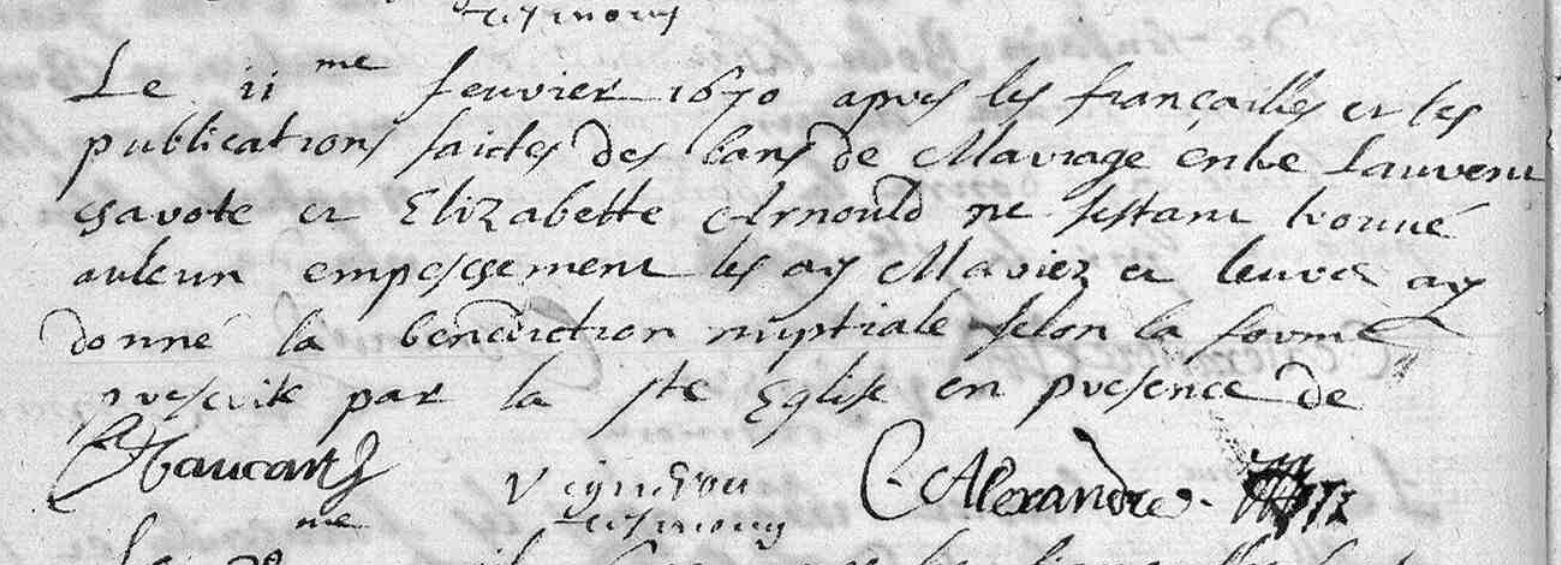 tesmoins
Le 11me feuvrier 1670 apres les françailles et les
publications faictes des bans de Mariage entre Laurent
chavote et Elizabette Arnould ne sestant trouvé
aulcun empeschement les ay Mariez et leurs ay
donné la benediction nuptiale selon la forme
prescrite par la ste Eglise en presence de
Haucart
Vigneron C. Alexandre
tesmoins
me